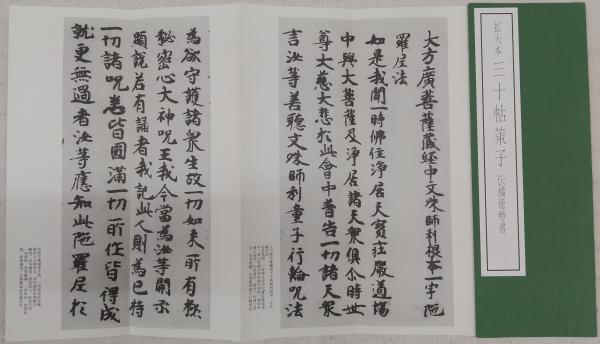 拡大本 三十帖策子 伝橘逸勢書
大方廣菩薩蔵経中文殊師利根本一字陁
羅尼法
如是我聞一時佛住浄居天寶荘嚴道場
中與大菩薩及浄居諸天衆俱尒時世
尊大慈大悲於此會中普告一切諸天衆
言汝等善聽文殊師利童子行輪呪法
為欲守護諸衆生故一切如来所有极
秘密心大神呪王我今當為汝等開示
顕説若有誦者我記此人則為已持
一切諸呪悉皆圓滿一切所作皆得成
就更無過者汝等應知此陁羅尼於